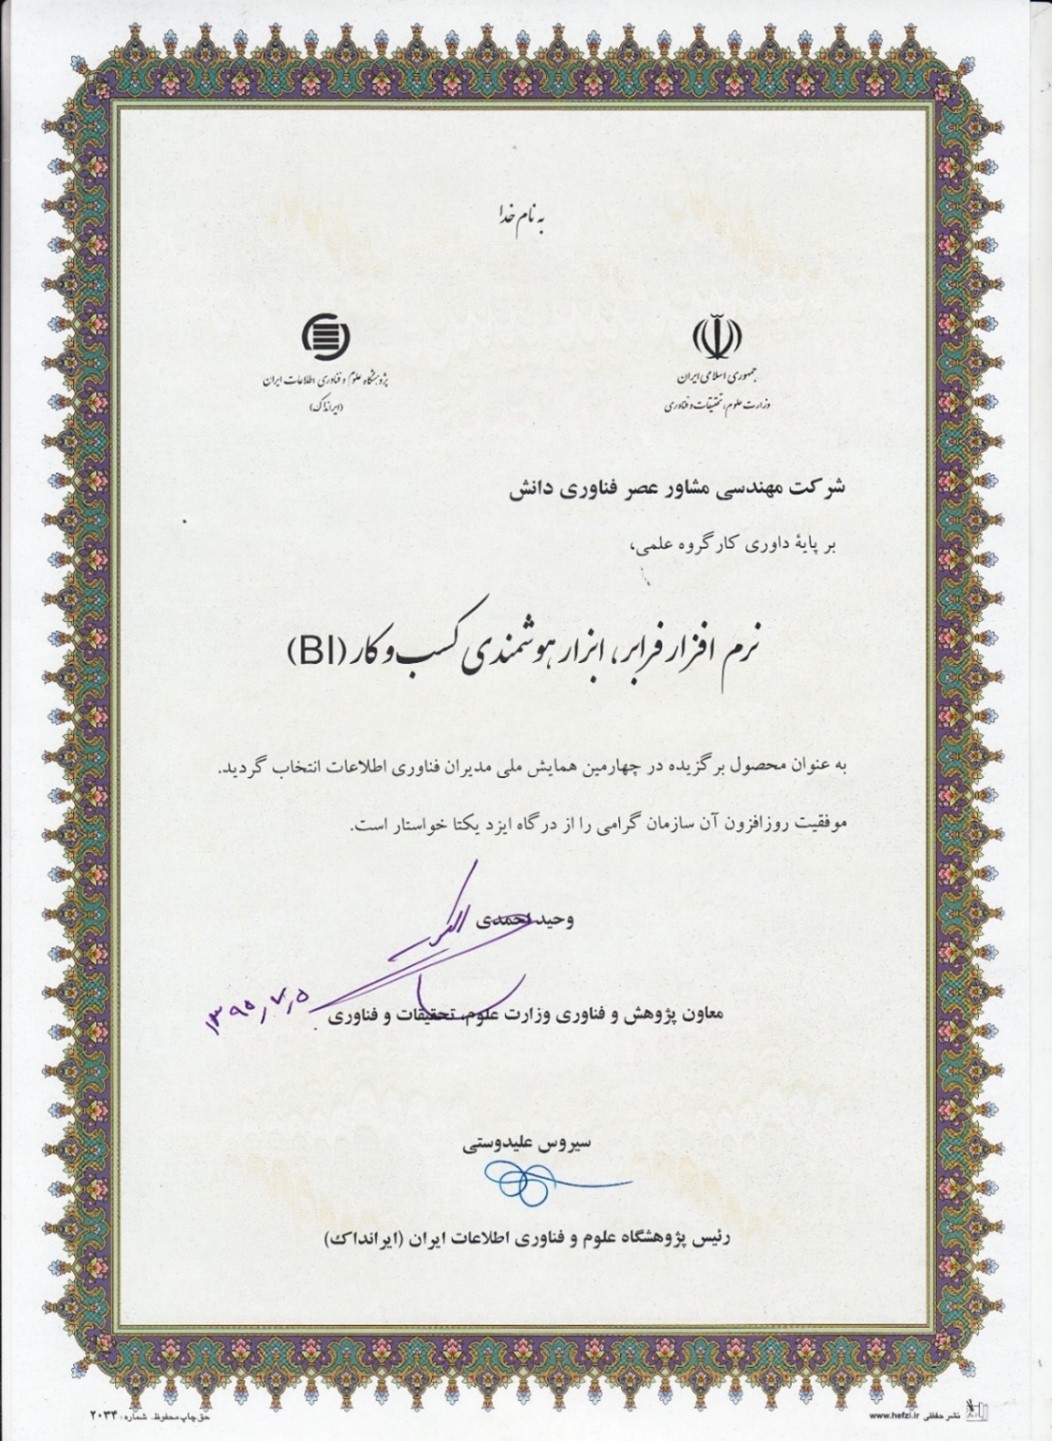 به نام خدا
جمهوری اسلامی ایران
وزارت علوم، تحقیقات و فناوری
پژوهشگاه علوم و فناوری اطلاعات ایران
(ایرانداک)
شرکت مهندسی مشاور عصر فناوری دانش
بر پایهٔ داوری کارگروه علمی،
نرم افزار فرابر، ابزار هوشمندی کسب و کار (BI)
به عنوان محصول برگزیده در چهارمین همایش ملی مدیران فناوری اطلاعات انتخاب گردید.
موفقیت روزافزون آن سازمان گرامی را از درگاه ایزد یکتا خواستار است.
وحید احمدی
۱۳۹۵/۷/۵
معاون پژوهش و فناوری وزارت علوم، تحقیقات و فناوری
سیروس علیدوستی
رئیس پژوهشگاه علوم و فناوری اطلاعات ایران (ایرانداک)
نشر حفظی www.hefzi.ir
حق چاپ محفوظ. شماره: ۲۰۳۴